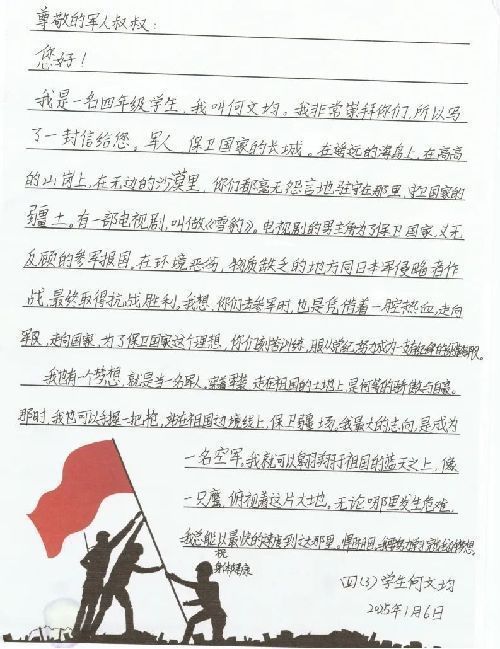 尊敬的军人叔叔：
您好！
我是一名四年级学生，我叫何文均。我非常崇拜你们，所以写
了一封信给您。军人 保卫国家的长城。在遥远的海岛上，在高高
的山岗上，在无边的沙漠里，你们都毫无怨言地驻守在那里，守卫国家的
疆土。有一部电视剧，叫做《雪豹》。电视剧的男主角为了保卫国家，义无
反顾的参军报国，在环境恶劣，物质缺乏的地方同日本军侵略者作
战，最终取得抗战胜利。我想，你们去参军时，也是凭借着一腔热血，走向
军队，走向国家，为了保卫国家这个理想，你们刻苦训练，服从
我也有一个梦想，就是当一名军人，走在祖国的土地上是何等的骄傲与自豪。
那时，我也可以手握一把枪，站在祖国边境线上，保卫疆土。我最大的志向，是成为
一名空军，我就可以翱翔于祖国的蓝天之上，像
一只鹰，俯视着这片大地。无论哪里发生危难，
我总能以最快的速度到达那里。
祝
身体健康
四(3)学生何文均
2025年1月6日